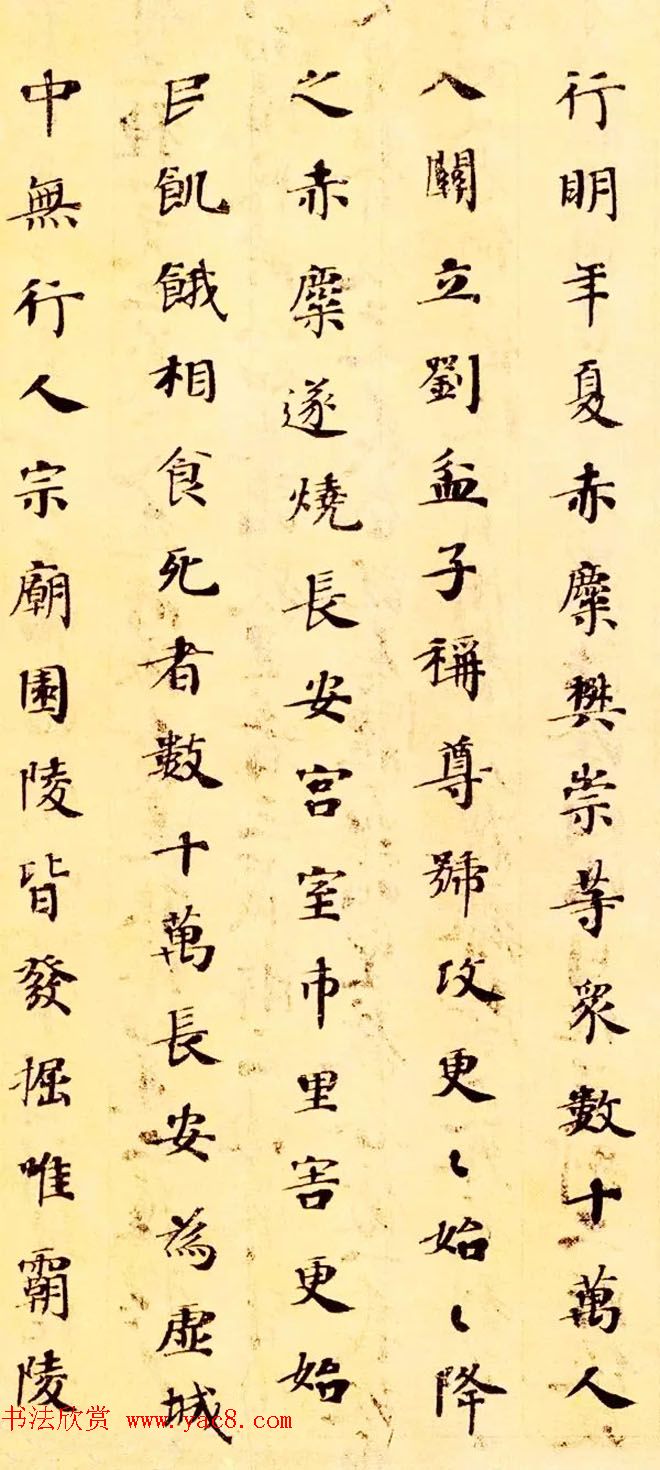 行明年夏赤麋樊崇等衆數十萬人
入關立劉盆子稱尊號攻更〻始〻降
之赤麋遂燒長安宮室市里害更始
民飢餓相食死者數十萬長安為虛城
中無行人宗廟園陵皆發掘唯霸陵
书法欣赏 www.yac8.com